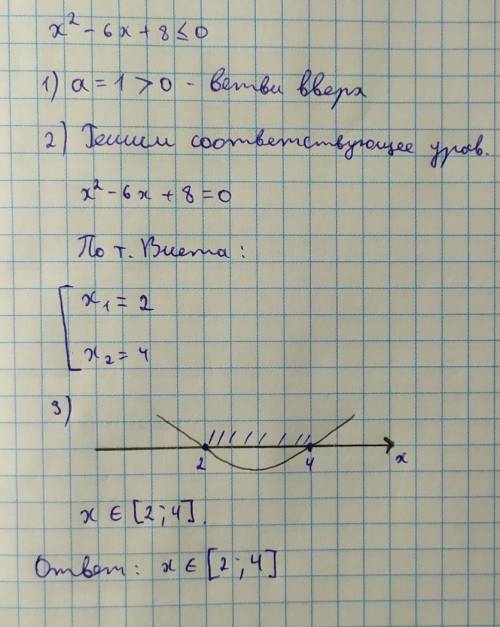 x² - 6x + 8 ≤ 0
1) a = 1 > 0 - ветви вверх
2) Решим соответствующее урав.
x² - 6x + 8 = 0
По т. Виета:
x₁ = 2
x₂ = 4
3)
2 4 x
x ∈ [2; 4].
Ответ: x ∈ [2; 4]